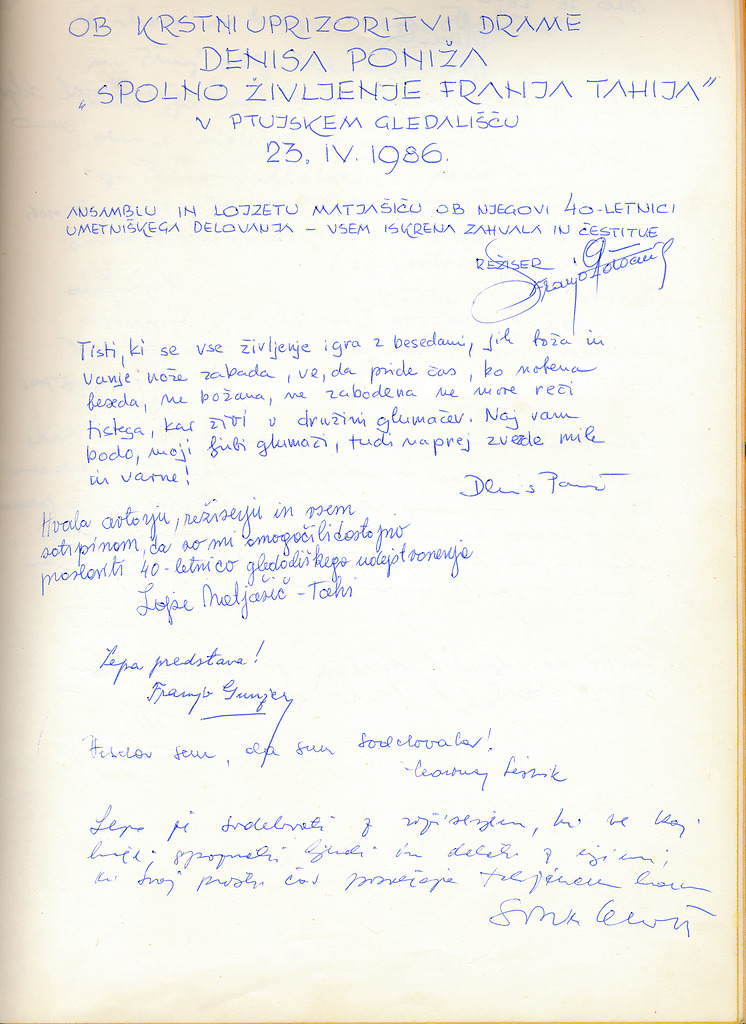 OB KRSTNI UPRIZORITVI DRAME
DENISA PONIŽA
„SPOLNO ŽIVLJENJE FRANJA TAHIJA”
V PTUJSKEM GLEDALIŠČU
23. IV. 1986.
ANSAMBLU IN LOJZETU MATJAŠIČU OB NJEGOVI 40-LETNICI
UMETNIŠKEGA DELOVANJA – VSEM ISKRENA ZAHVALA IN ČESTITKE
REŽISER
Franjo
Tisti, ki se vse življenje igra z besedami, jih boža in
vanje nože zabada, ve, da pride čas, ko nobena
beseda, ne božana, ne zabodena ne more reči
tistega, kar živi v družini glumačev. Naj vam
bodo, moji ljubi glumači, tudi naprej zvezde mile
in varne!
Denis Poniž
Hvala avtorju, režiserju in vsem
sotrpinom, da so mi omogočili dostojno
proslaviti 40-letnico gledališkega udejstvovanja
Lojze Matjašič – Tahi
Lepa predstava!
Franjo
Veselov sem, da sem sodeloval!
Lepo je sodelovati z režiserjem, ki ve kaj
hoče, spoznati ljudi in delati z njimi,
ki svoj prosti čas posvečajo